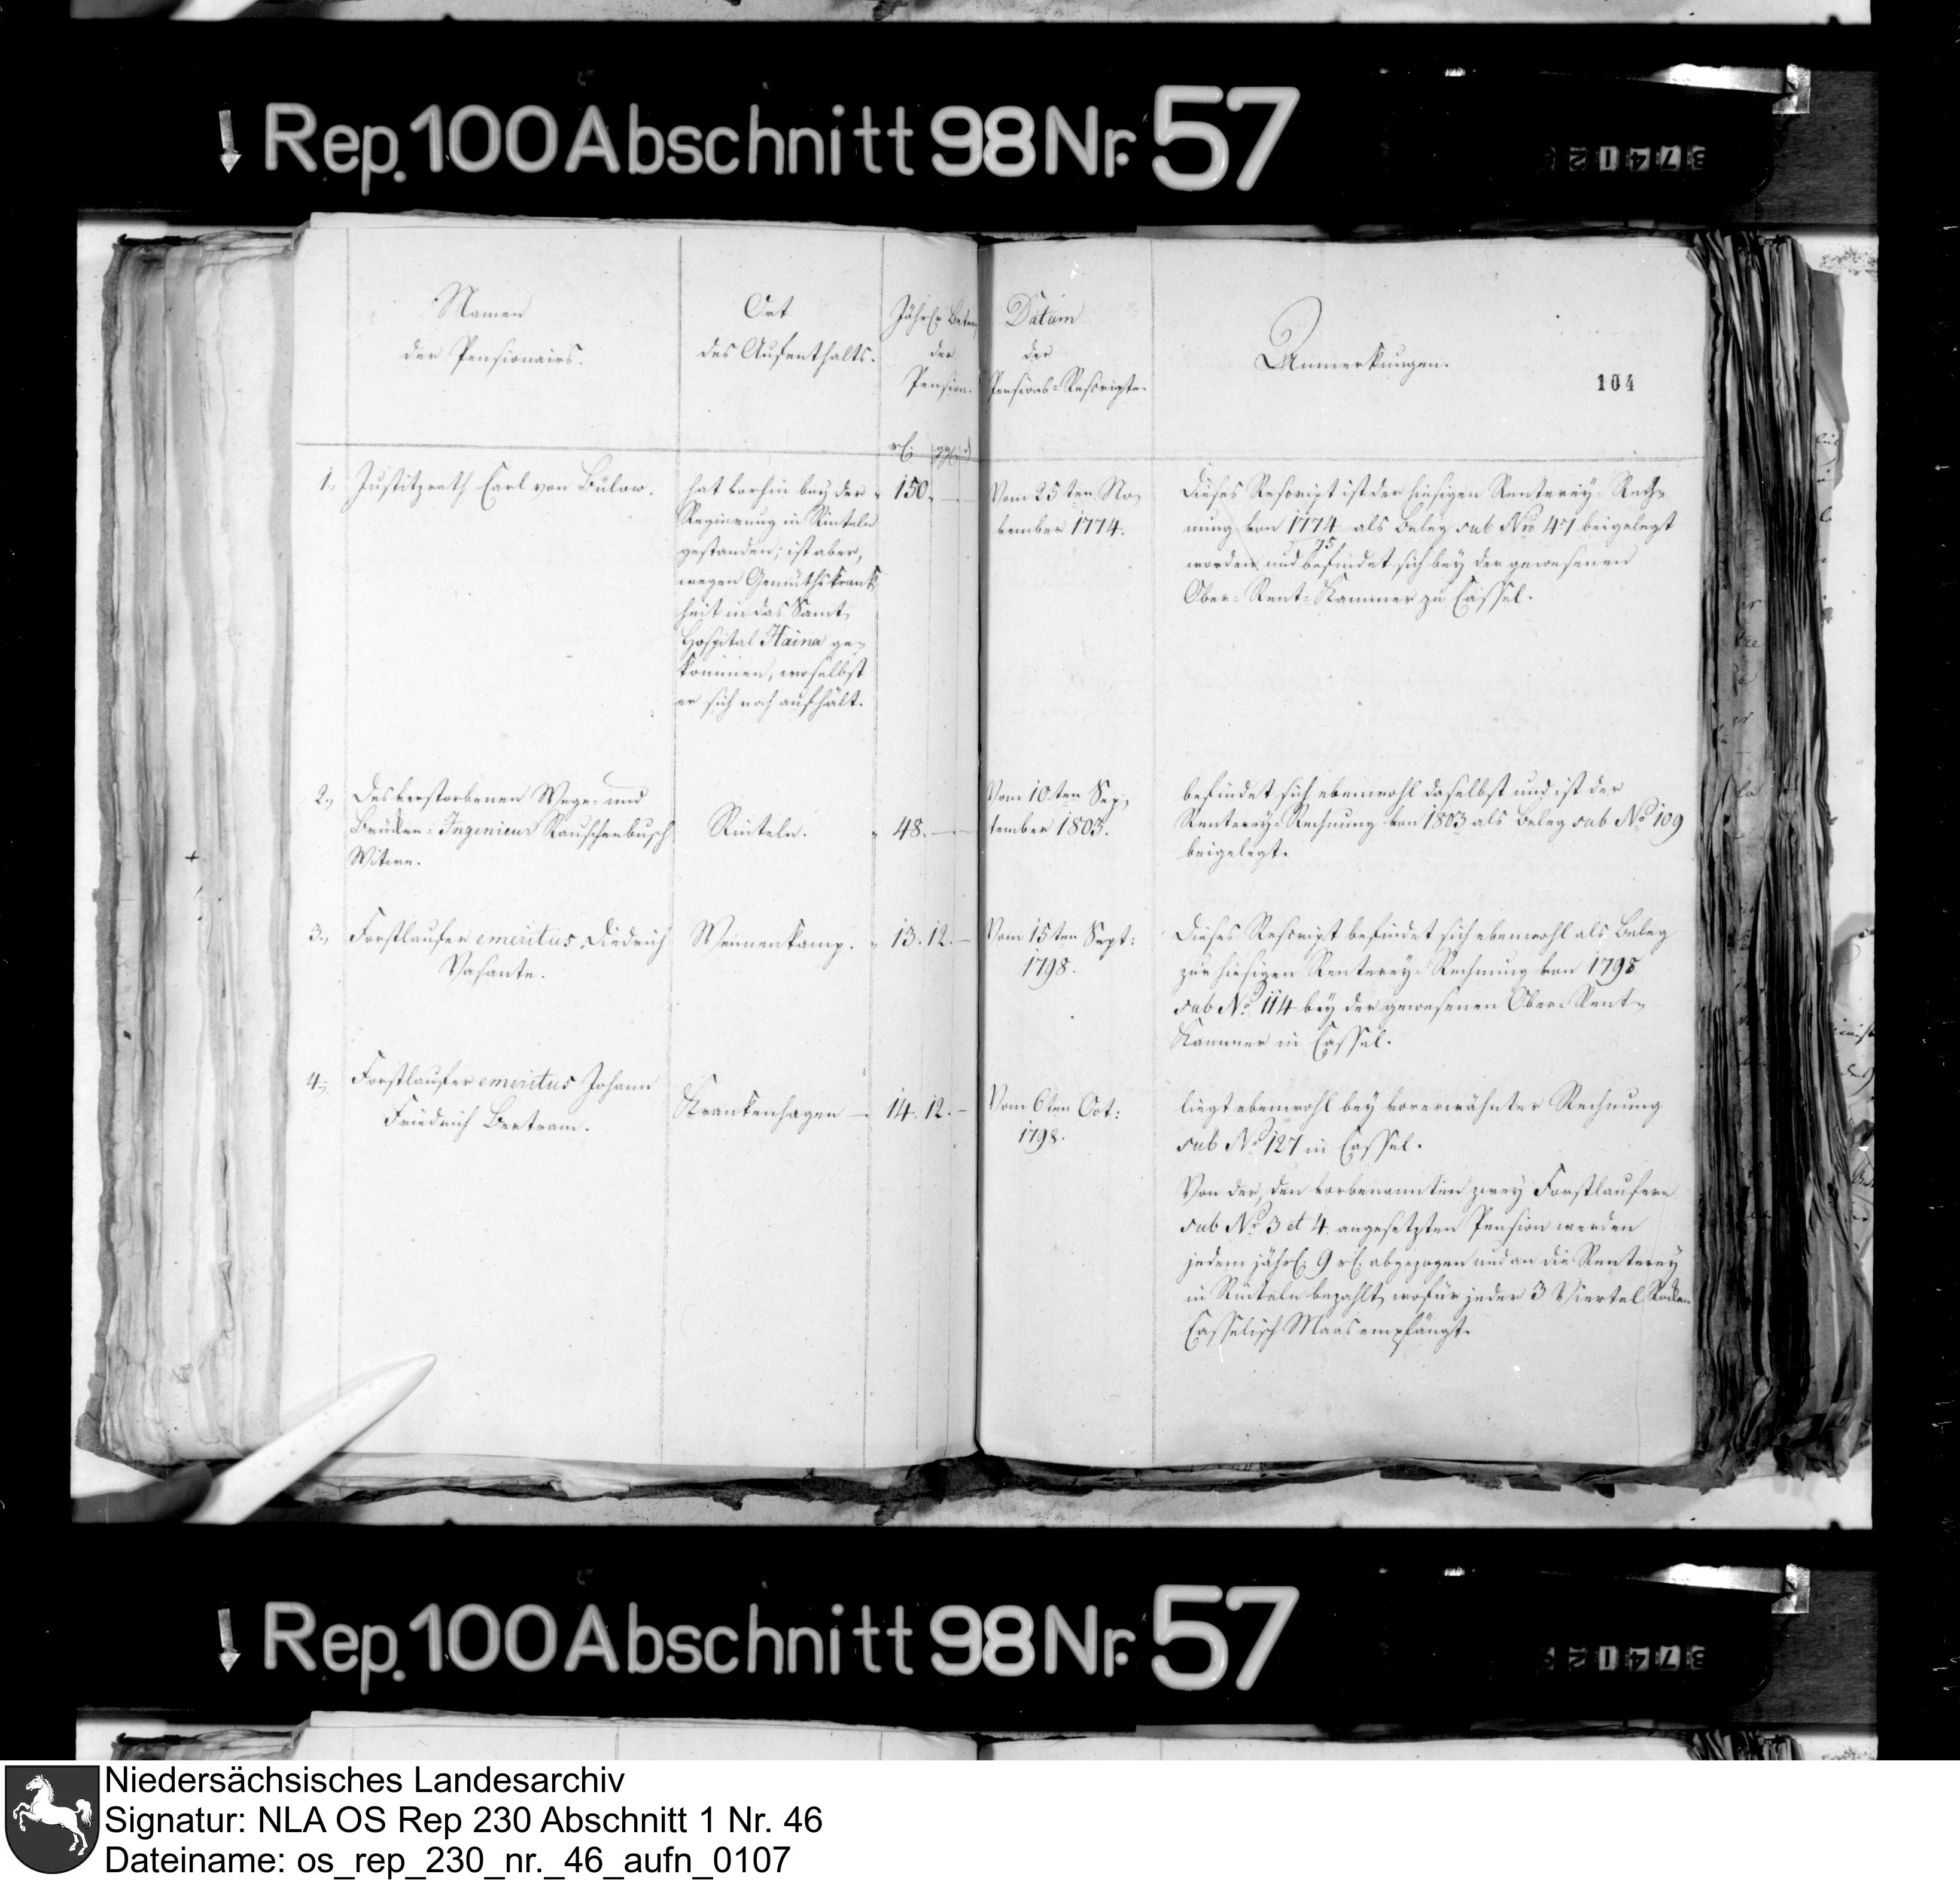 Rep. 100 Abschnitt 98 Nr. 57
37412
Namen
der Pensionairs.
Ort
des Aufenthalts.
Jährl. Betrag
der
Pension.
Datum
der
Pensions-Rescripte.
Anmerkungen.
104
rl. ggl.
1. Justitzrath Carl von Bülow.
hat vorhin bey der
Regierung in Rinteln
gestanden; ist aber,
wegen Gemüthskrank
heit in das Samt
Hospital Haina ge-
kommen, woselbst
er sich noch aufhält.
150. —
Vom 25ten No-
vember 1774.
Dieses Rescript ist der hiesigen Renterey-Rech-
nung von 1774/75 als Beleg sub Nro 47 beigelegt
worden und befindet sich bey der gewesenen
Ober-Rent-Kammer zu Cassel.
2. Des verstorbenen Wege- und
Brücken-Ingenieur Rauschenbusch
Witwe.
Rinteln.
48. —
Vom 10ten Sep-
tember 1803.
befindet sich ebenwohl daselbst und ist der
Renterey-Rechnung von 1803 als Beleg sub No 109
beigelegt.
3. Forstlaufer emeritus Diedrich
Vasante.
Wennenkamp.
13. 12. —
Vom 15ten Sept:
1798.
Dieses Rescript befindet sich ebenwohl als Beleg
zur hiesigen Renterey-Rechnung von 1798
sub No 114 bey der gewesenen Ober-Rent-
Kammer in Cassel.
4. Forstlaufer emeritus Johann
Friedrich Bertram.
Krankenhagen —
14. 12. —
Vom 6ten Oct:
1798.
liegt ebenwohl bey vorerwähnter Rechnung
sub No 127 in Cassel.
Von der, den vorbenannten zwey Forstlaufern
sub No 3 et 4. angesetzten Pension werden
jedem jährl. 9 rl. abgezogen und an die Renterey
in Rinteln bezahlt, wofür jeder 3 Viertel Rocken
Casselisch Maas empfängt.
Rep. 100 Abschnitt 98 Nr. 57
37412
Niedersächsisches Landesarchiv
Signatur: NLA OS Rep 230 Abschnitt 1 Nr. 46
Dateiname: os_rep_230_nr._46_aufn_0107